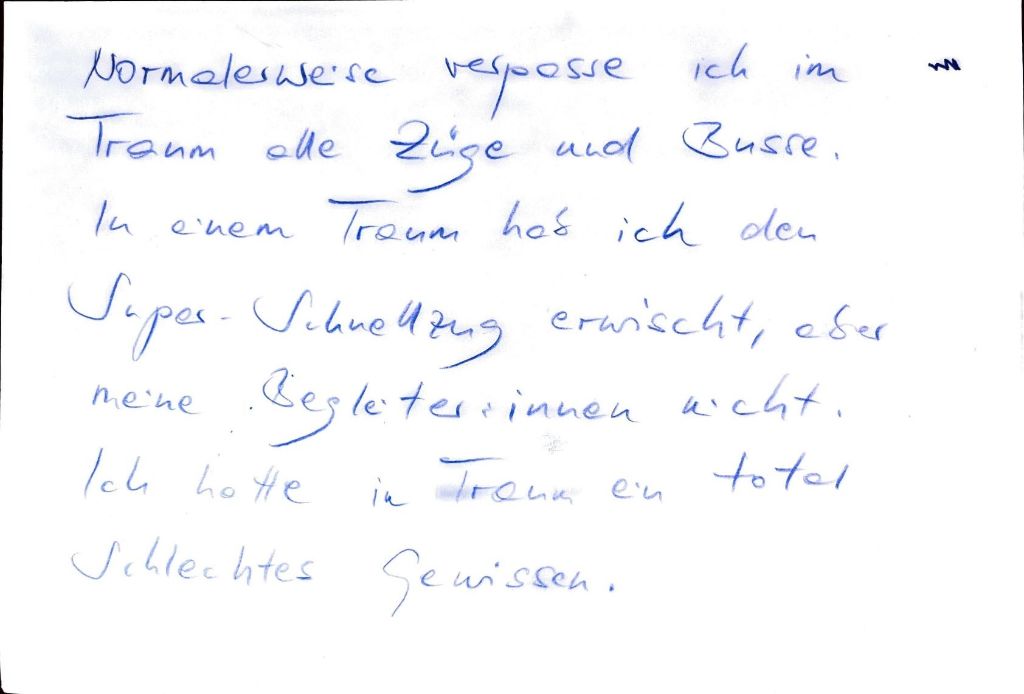 Normalerweise verpasse ich im
Traum alle Züge und Busse.
In einem Traum hab ich den
Super-Schnellzug erwischt, aber
meine Begleiter:innen nicht.
Ich hatte im Traum ein total
schlechtes Gewissen.